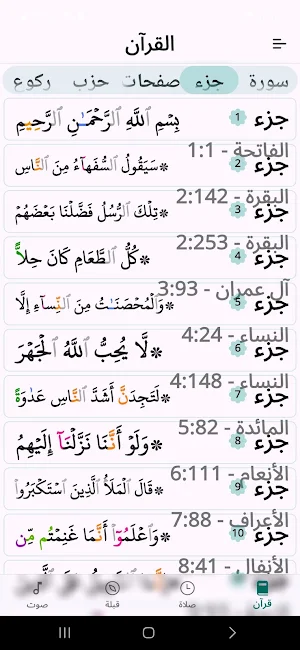 القرآن
سورة جزء صفحات حزب ركوع
جزء 1 بِسْمِ ٱللَّهِ ٱلرَّحْمَـٰنِ ٱلرَّحِيمِ
الفاتحة - 1:1
جزء 2 ۞سَيَقُولُ ٱلسُّفَهَآءُ مِنَ ٱلنَّاسِ
البقرة - 2:142
جزء 3 ۞تِلْكَ ٱلرُّسُلُ فَضَّلْنَا بَعْضَهُمْ
البقرة - 2:253
جزء 4 ۞كُلُّ ٱلطَّعَامِ كَانَ حِلًّا
آل عمران - 3:93
جزء 5 ۞وَٱلْمُحْصَنَـٰتُ مِنَ ٱلنِّسَآءِ إِلَّا
النساء - 4:24
جزء 6 ۞لَّا يُحِبُّ ٱللَّهُ ٱلْجَهْرَ
النساء - 4:148
جزء 7 ۞لَتَجِدَنَّ أَشَدَّ ٱلنَّاسِ عَدَٰوَةً
المائدة - 5:82
جزء 8 ۞وَلَوْ أَنَّنَا نَزَّلْنَآ إِلَيْهِمُ
الأنعام - 6:111
جزء 9 ۞قَالَ ٱلْمَلَأُ ٱلَّذِينَ ٱسْتَكْبَرُوا۟
الأعراف - 7:88
جزء 10 ۞وَٱعْلَمُوٓا۟ أَنَّمَا غَنِمْتُم مِّن
الأنفال - 8:41
قرآن صلاة قبلة صوت